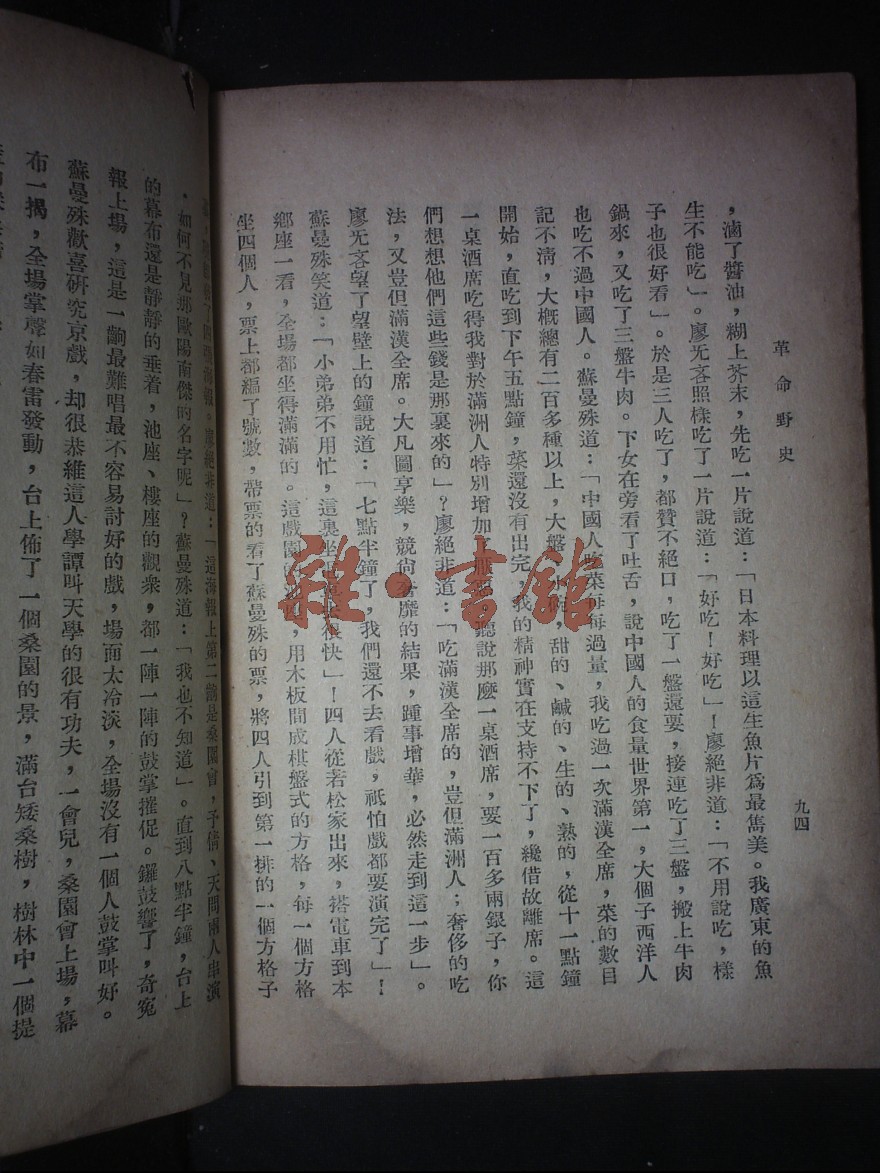 革命野史
九四
，滷了醬油，糊上芥末，先吃一片說道：「日本料理以這生魚片爲最雋美。我廣東的魚
生不能吃」。廖旡咎照樣吃了一片說道：「好吃！好吃」！廖絕非道：「不用說吃，樣
子也很好看」。於是三人吃了，都贊不絕口，吃了一盤還要，接連吃了三盤，搬上牛肉
鍋來，又吃了三盤牛肉。下女在旁看了吐舌，說中國人的食量世界第一，大個子西洋人
也吃不過中國人。蘇曼殊道：「中國人吃菜每每過量，我吃過一次滿漢全席，菜的數目
記不淸，大概總有二百多種以上，大盤小碗，甜的、鹹的、生的、熟的，從十一點鐘
開始，直吃到下午五點鐘，菜還沒有出完，我的精神實在支持不下了，纔借故離席。這
一桌酒席吃得我對於滿洲人特別增加了 聽說那麼一桌酒席，要一百多兩銀子，你
們想想他們這些錢是那裏來的」？廖絕非道：「吃滿漢全席的，豈但滿洲人；奢侈的吃
法，又豈但滿漢全席。大凡圖享樂，競尙奢靡的結果，踵事增華，必然走到這一步」。
廖旡咎望了望壁上的鐘說道：「七點半鐘了，我們還不去看戲，祇怕戲都要演完了」！
蘇曼殊笑道：「小弟弟不用忙，這裏坐電車去很快」！四人從若松家出來，搭電車到本
鄕座一看，全場都坐得滿滿的。這戲園的池座，用木板間成棋盤式的方格，每一個方格
坐四個人，票上都編了號數，帶票的看了蘇曼殊的票，將四人引到第一排的一個方格子
廖絕非道：「這海報上第二齣是桑園會，予倩、天問兩人串演
，如何不見那歐陽南傑的名字呢」？蘇曼殊道：「我也不知道」。直到八點半鐘，台上
的幕布還是靜靜的垂着，池座、樓座的觀衆，都一陣一陣的鼓掌摧促。鑼鼓響了，奇寃
報上場，這是一齣最難唱最不容易討好的戲，場面太冷淡，全場沒有一個人鼓掌叫好。
蘇曼殊歡喜硏究京戲，却很恭維這人學譚叫天學的很有功夫，一會兒，桑園會上場，幕
布一揭，全場掌聲如春雷發動，台上佈了一個桑園的景，滿台矮桑樹，樹林中一個提
雜·書館